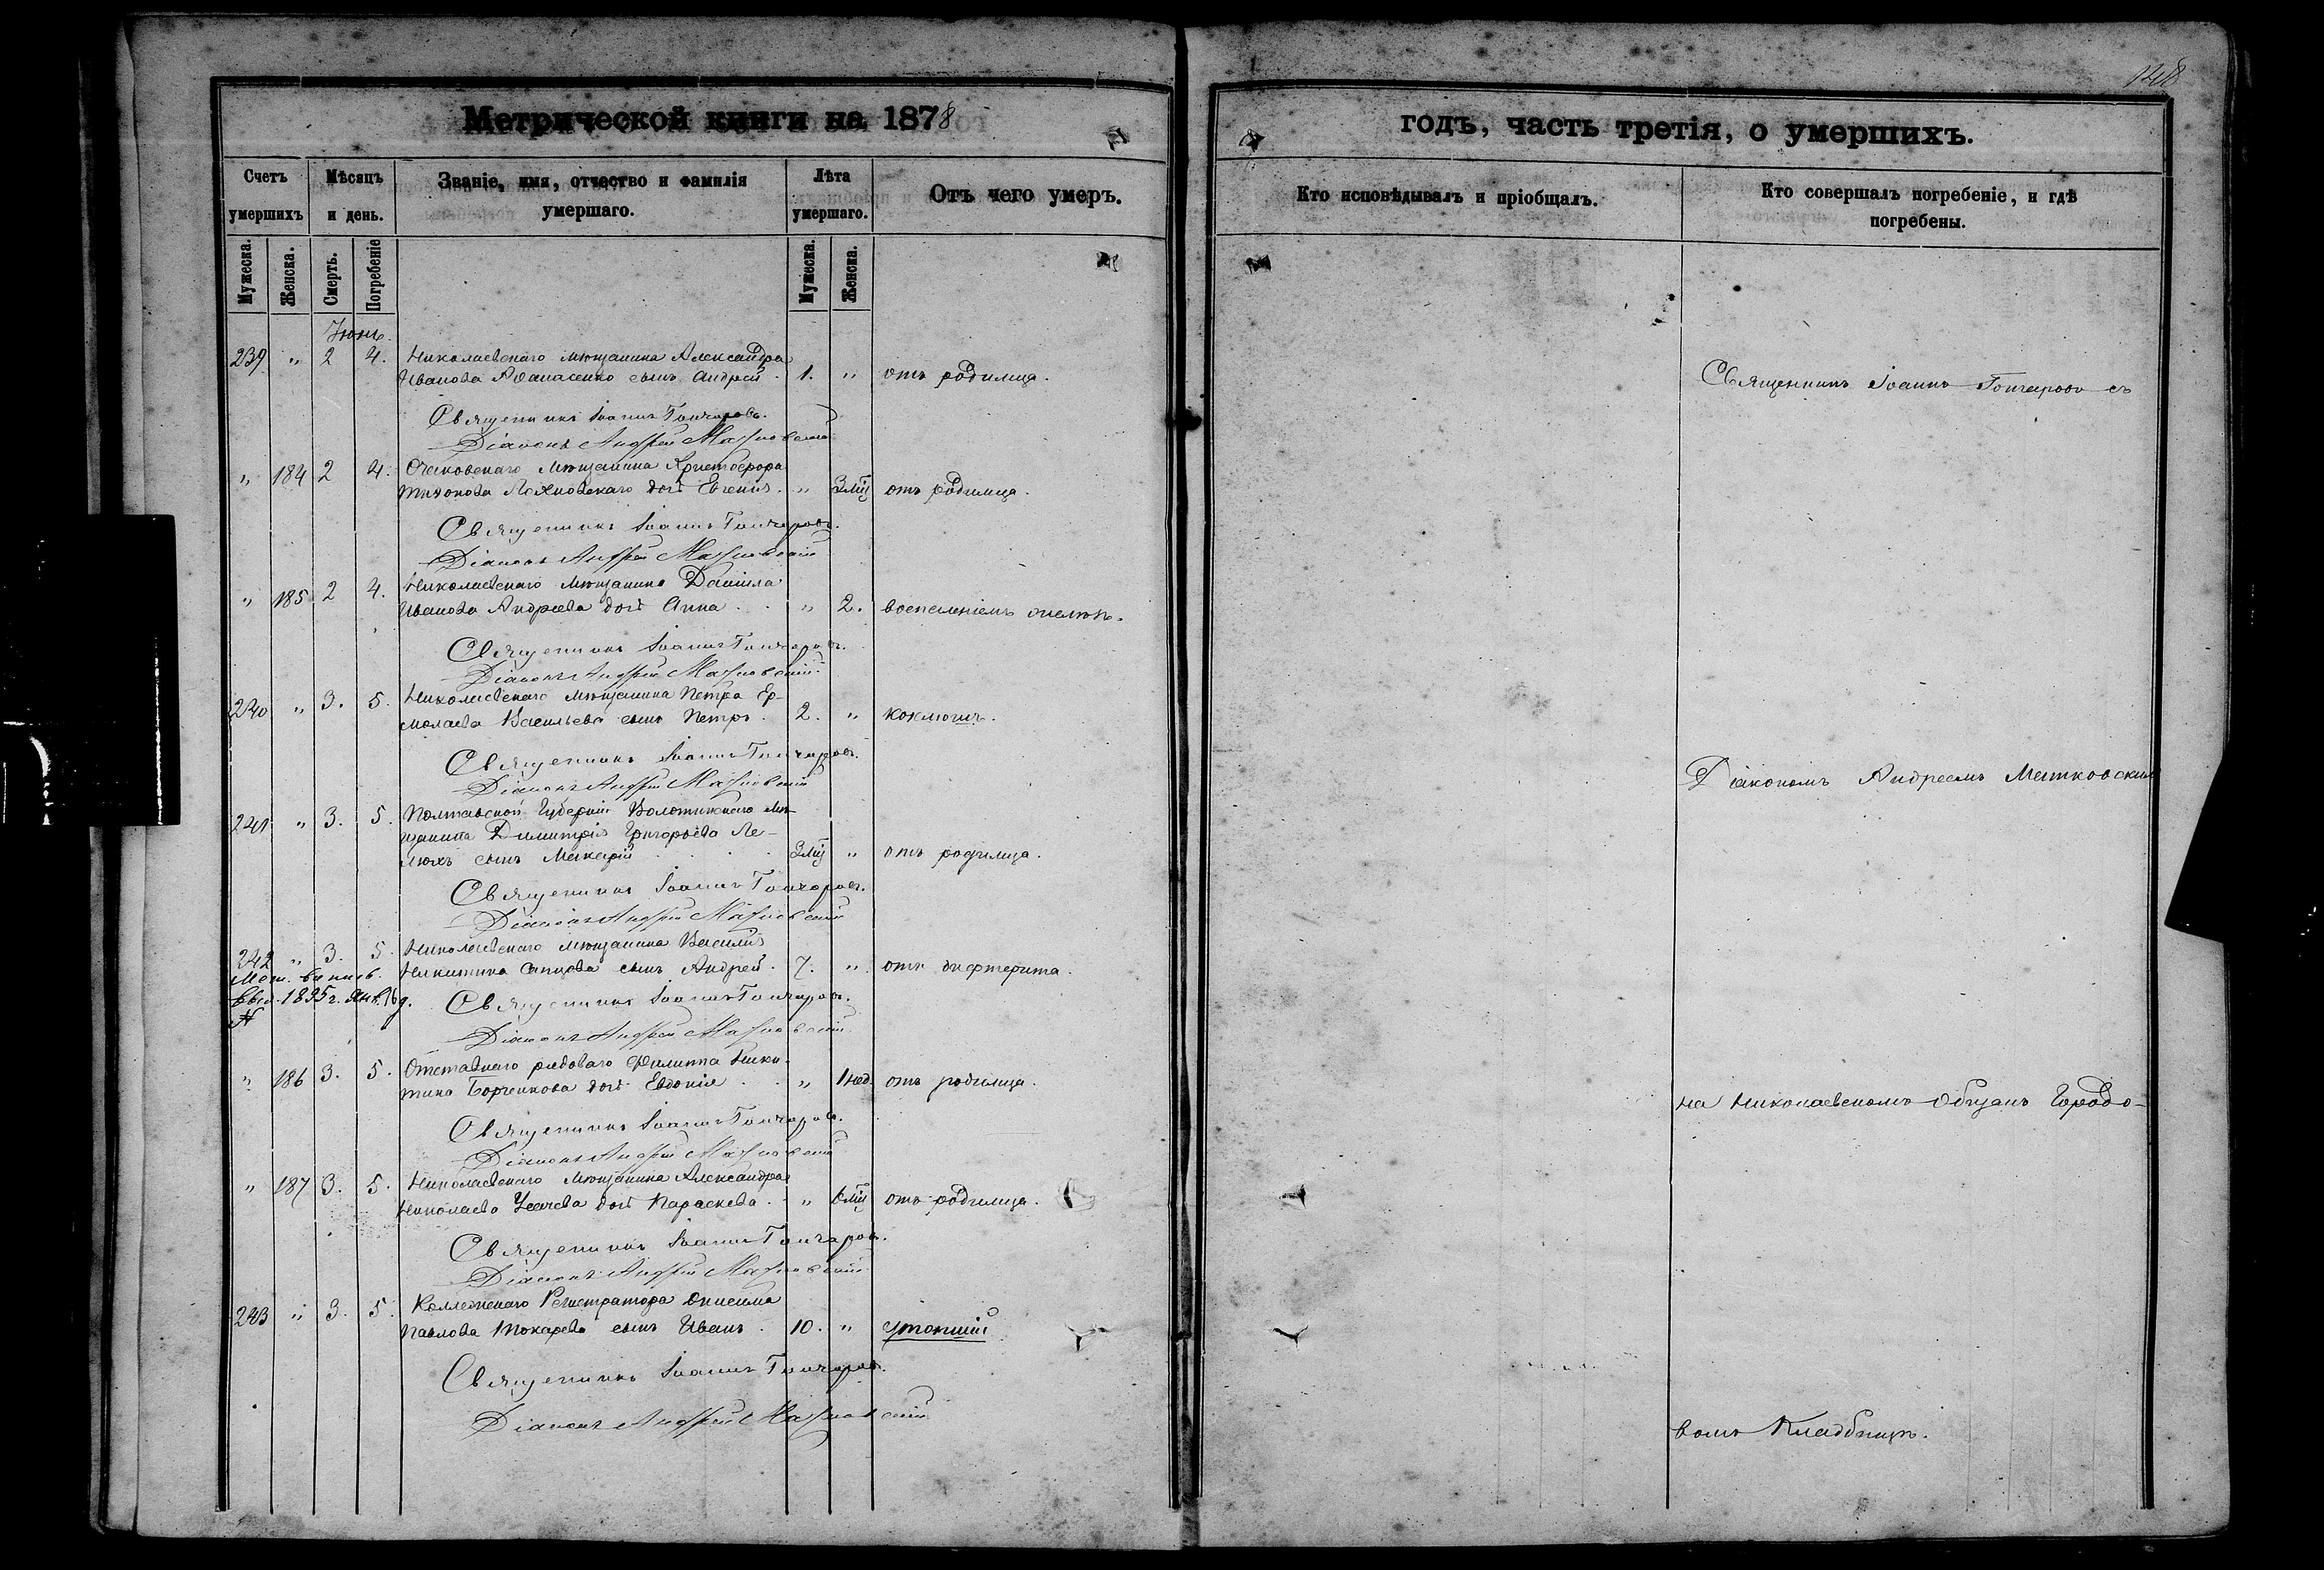 148
Метрической книги на 1878
годъ, часть третія, о умершихъ.
Счетъ умершихъ
Мѣсяцъ и день.
Званіе, имя, отчество и фамилія умершаго.
Лѣта умершаго.
Отъ чего умеръ.
Кто исповѣдывалъ и пріобщалъ.
Кто совершалъ погребеніе, и гдѣ погребены.
Мужеска.
Женска.
Смерть.
Погребеніе
Мужеска.
Женска.
Іюнь.
239 " 2 4. Николаевскаго мѣщанина Александра
Иванова Аѳанасенко сынъ Андрей. 1. " отъ родимца.
Священникъ Іоаннъ Гончаровъ.
Діаконъ Андрей Матковскій
" 184 2 4. Очаковскаго мѣщанина Христофора
Тихонова Лехновскаго дочь Евгенія. " 3 мц отъ родимца.
Священникъ Іоаннъ Гончаровъ.
Діаконъ Андрей Матковскій
" 185 2 4. Николаевскаго мѣщанина Даніила
Иванова Андреева дочь Анна. " 2. воспаленіемъ
Священникъ Іоаннъ Гончаровъ.
Діаконъ Андрей Матковскій
240 " 3. 5. Николаевскаго мѣщанина Петра Ер-
молаева Васильева сынъ Петръ. 2. " коклюшъ.
Священникъ Іоаннъ Гончаровъ.
Діаконъ Андрей Матковскій
241 " 3. 5. Полтавской Губерніи мѣ-
щанина Димитрія Григорьева Ле-
люхъ сынъ Макарій 3 мц " отъ родимца.
Священникъ Іоаннъ Гончаровъ.
Діаконъ Андрей Матковскій
242 " 3. 5. Николаевскаго мѣщанина Василія
Никитина сынъ Андрей. 7. " отъ дифтерита.
1895 г. Янв. 16 д.
Священникъ Іоаннъ Гончаровъ.
Діаконъ Андрей Матковскій
" 186 3. 5. Отставнаго рядоваго Филиппа Ники-
тина Борченкова дочь Евдокія " 1 нед. отъ родимца.
Священникъ Іоаннъ Гончаровъ.
Діаконъ Андрей Матковскій
" 187 3. 5. Николаевскаго мѣщанина Александра
Николаева Усачева дочь Параскева. " 6 мц отъ родимца.
Священникъ Іоаннъ Гончаровъ.
Діаконъ Андрей Матковскій
243 " 3. 5. Коллежскаго Регистратора Онисима
Павлова Токарева сынъ Иванъ. 10. " утопшій
Священникъ Іоаннъ Гончаровъ.
Діаконъ Андрей Матковскій
Священникъ Іоаннъ Гончаровъ съ
Діакономъ Андреемъ Матковским
на Николаевскомъ Общемъ Городо-
вомъ Кладбищѣ.